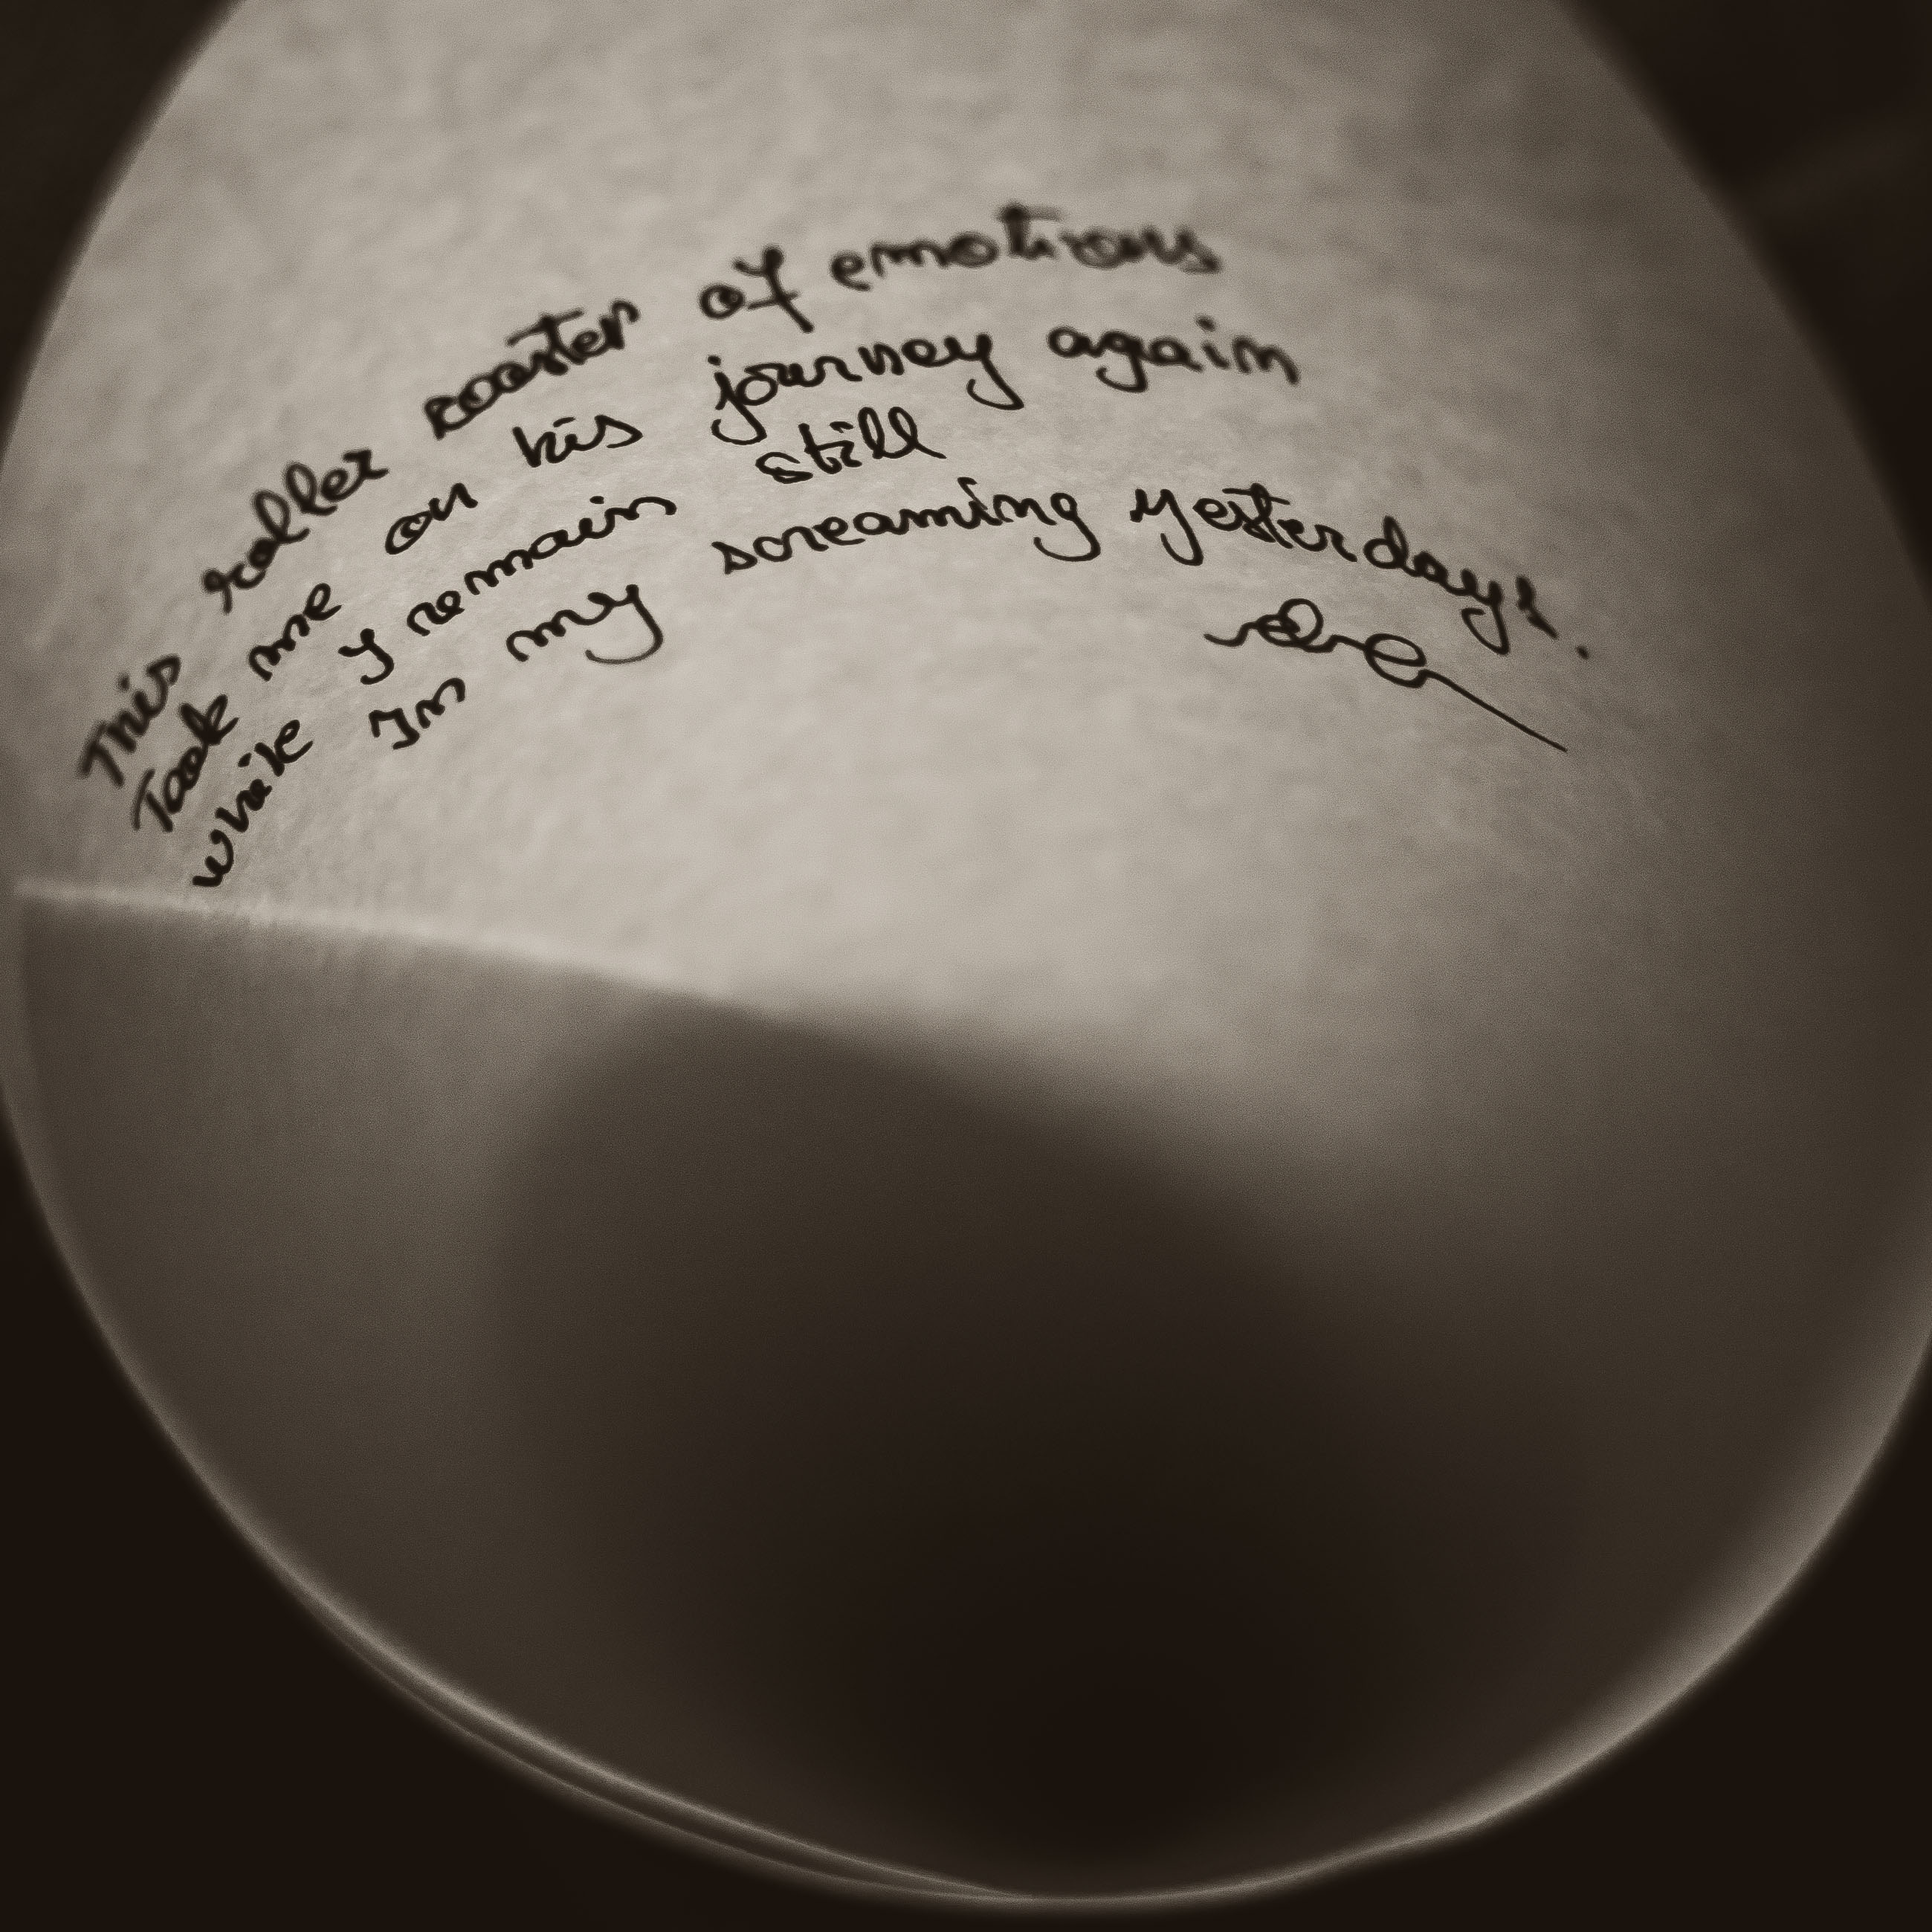 This roller coaster of emotions
Took me on his journey again
while I remain still
In my screaming yesterday!.